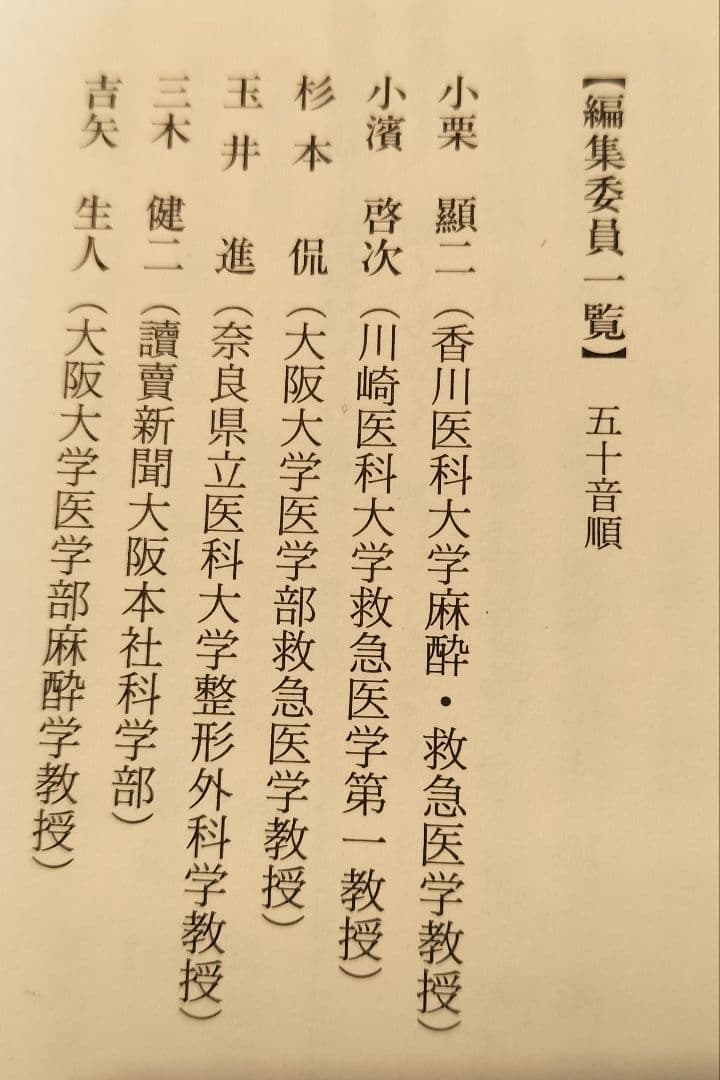 【編集委員一覧】 五十音順
小栗 顯二（香川医科大学麻酔・救急医学教授）
小濱 啓次（川崎医科大学救急医学第一教授）
杉本 侃（大阪大学医学部救急医学教授）
玉井 進（奈良県立医科大学整形外科学教授）
三木 健二（讀賣新聞大阪本社科学部）
吉矢 生人（大阪大学医学部麻酔学教授）